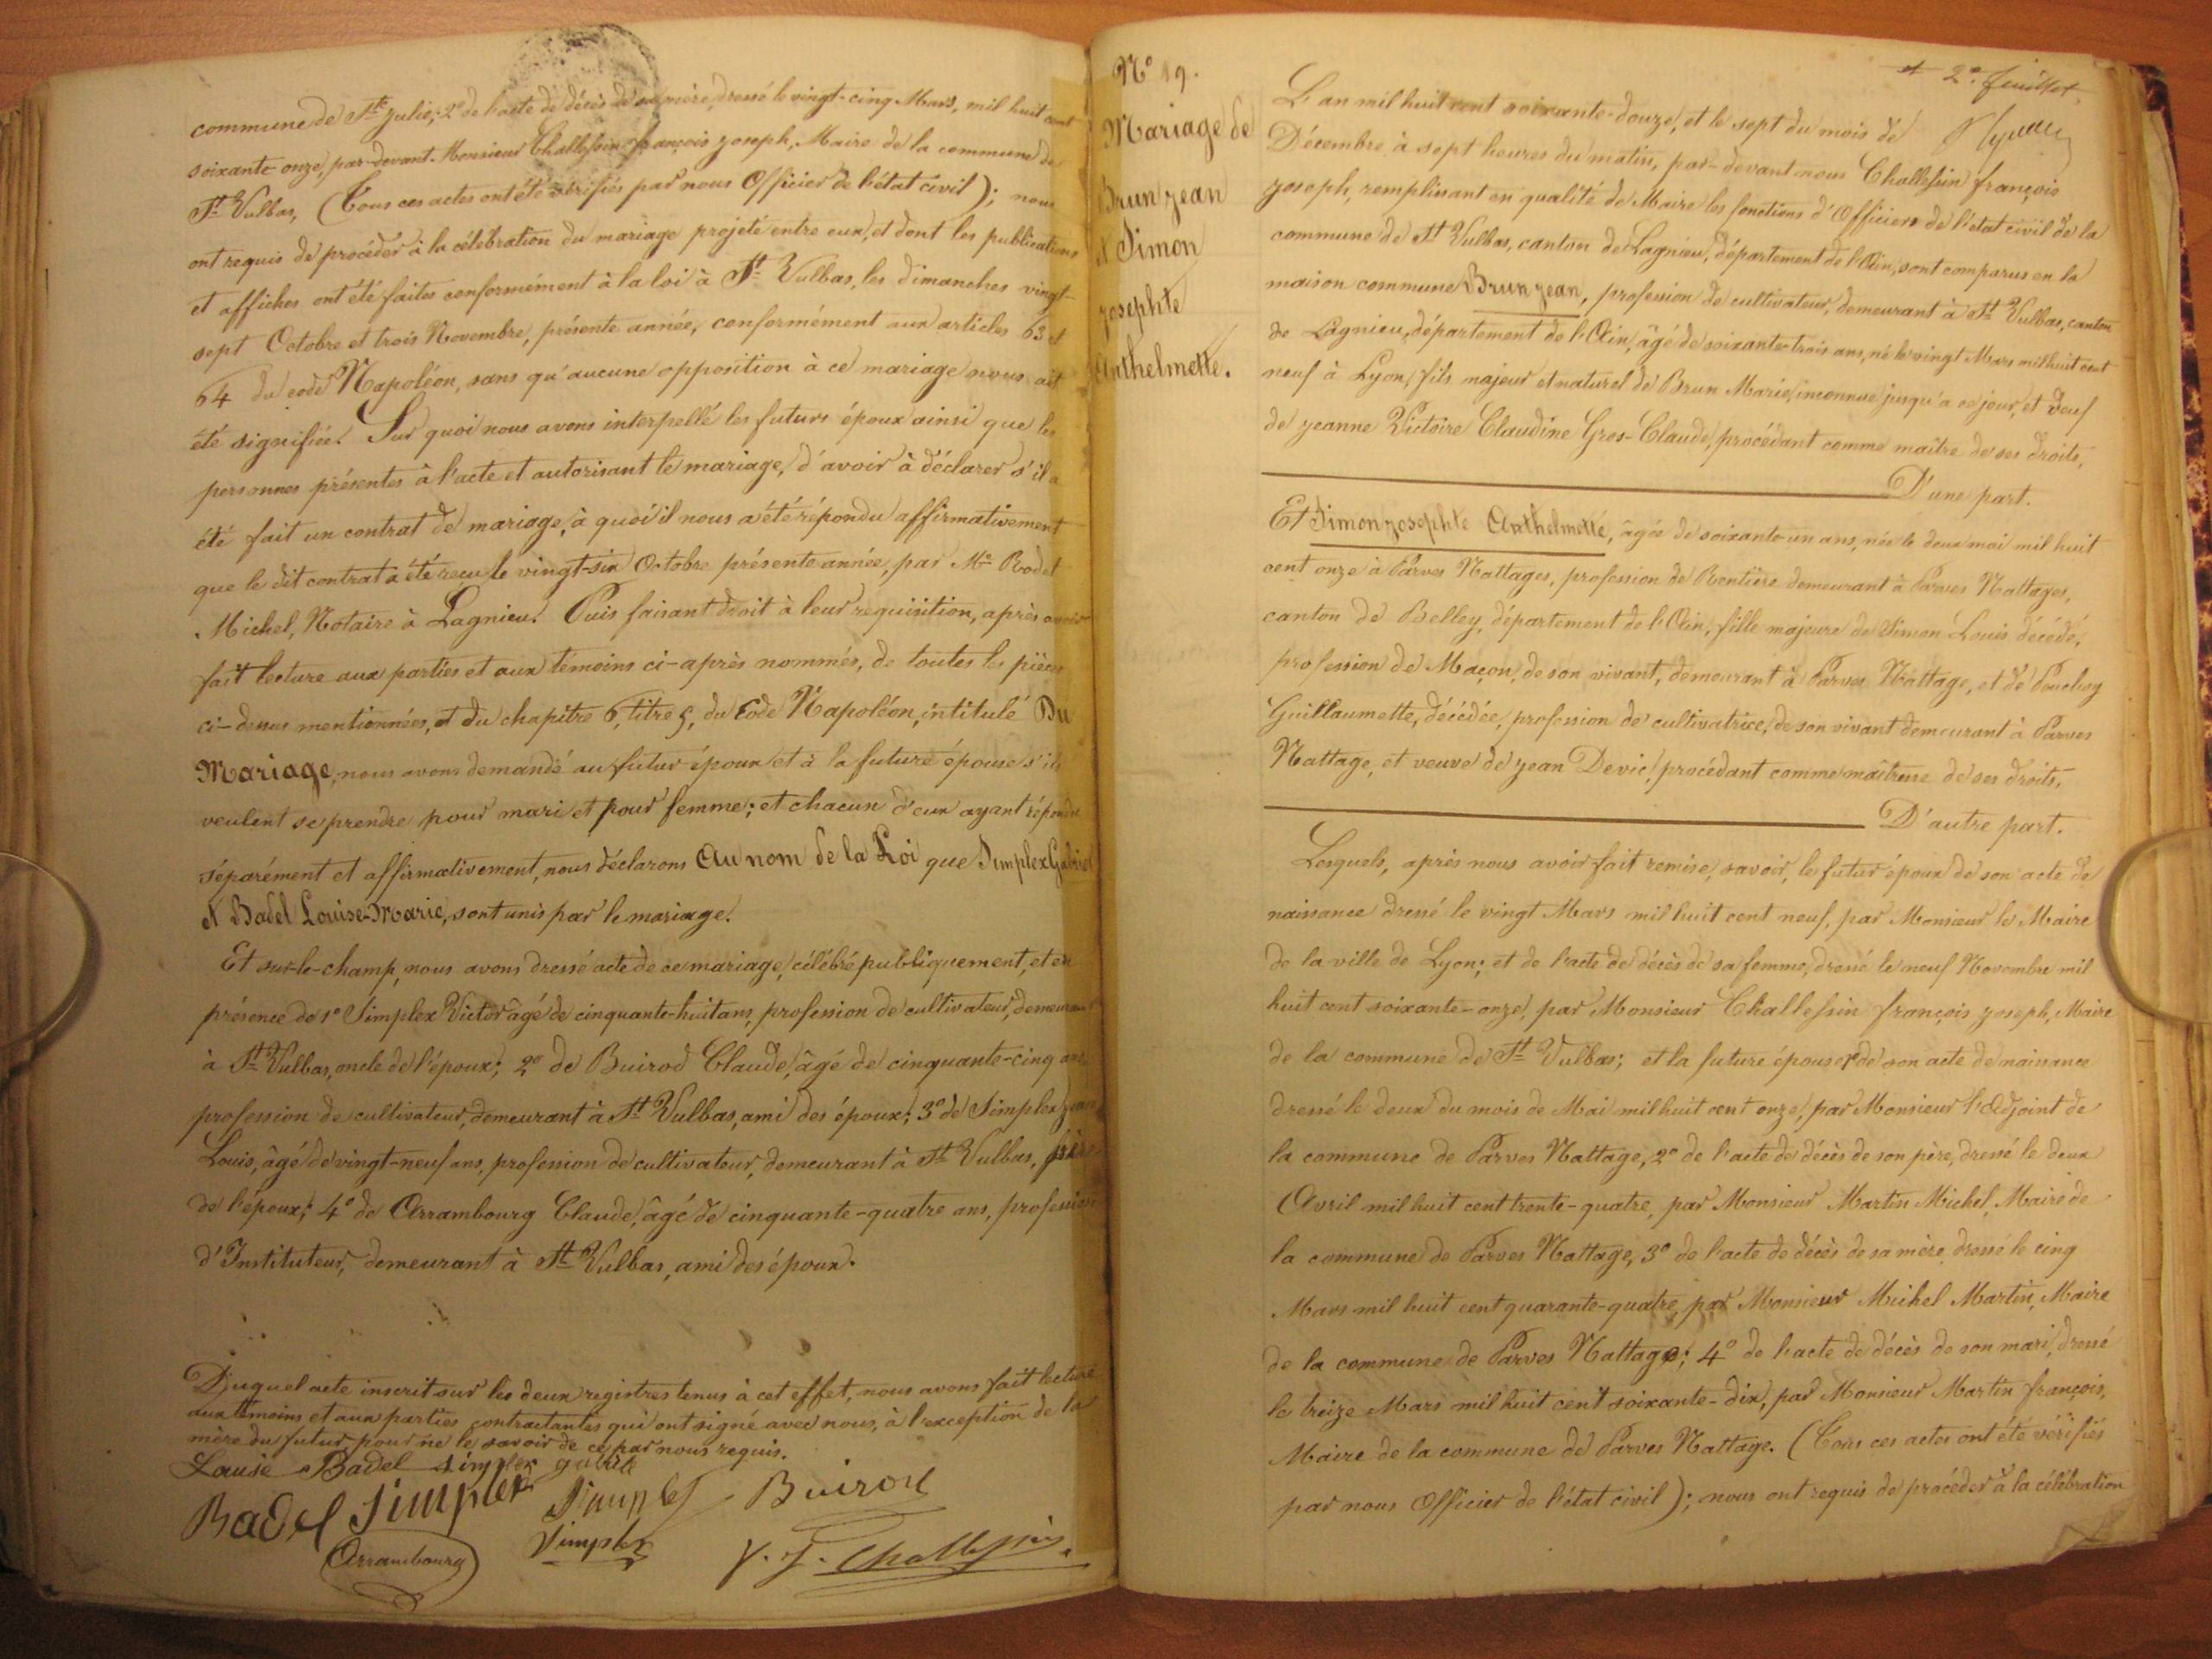 commune de Ste Julie; 2º de l'acte de décès de sa mère, dressé le vingt-cinq Mars, mil huit cent
soixante-onze, par-devant Monsieur Challessin françois Joseph, Maire de la commune de
St Vulbas, (Tous ces actes ont été vérifiés par nous Officier de l'état civil); nous
ont requis de procéder à la célébration du mariage projeté entre eux, et dont les publications
et affiches ont été faites conformément à la loi à St Vulbas, les dimanches vingt-
sept Octobre et trois Novembre, présente année, conformément aux articles 63 et
64 du code Napoléon, sans qu'aucune opposition à ce mariage nous ait
été signifiée. Sur quoi nous avons interpellé les futurs époux ainsi que les
personnes présentes à l'acte et autorisant le mariage, d'avoir à déclarer s'il a
été fait un contrat de mariage, à quoi il nous a été répondu affirmativement
que le dit contrat a été reçu le vingt-six Octobre présente année, par Me Rodet
Michel, Notaire à Lagnieu. Puis faisant droit à leur requisition, après avoir
fait lecture aux parties et aux témoins ci-après nommés, de toutes les pièces
ci-dessus mentionnées, et du chapitre 6, titre 5, du Code Napoléon, intitulé Du
Mariage, nous avons demandé au futur époux et à la future épouse s'ils
veulent se prendre pour mari et pour femme; et chacun d'eux ayant répondu
séparément et affirmativement, nous déclarons Au nom de la Loi que Simplex Gabriel
et Badel Louise-Marie, sont unis par le mariage.
Et sur-le-champ, nous avons dressé acte de ce mariage, célébré publiquement, et en
présence de 1º Simplex Victor âgé de cinquante-huit ans, profession de cultivateur, demeurant
à St Vulbas, oncle de l'époux; 2º de Buirod Claude, âgé de cinquante-cinq ans
profession de cultivateur, demeurant à St Vulbas, ami des époux; 3º de Simplex Jean
Louis, âgé de vingt-neuf ans, profession de cultivateur, demeurant à St Vulbas, frère
de l'époux; 4º de Arrambourg Claude, âgé de cinquante-quatre ans, profession
d'Instituteur, demeurant à St Vulbas, ami des époux.
Duquel acte inscrit sur les deux registres tenus à cet effet, nous avons fait lecture
aux témoins et aux parties contractantes qui ont signé avec nous, à l'exception de la
mère du futur, pour ne le savoir de ce par nous requis.
Louise Badel Simplex gabriel
Badel Simplex Simplex Buirod
Arrambourg Simplex f. J. Challessin
Nº 19.
Mariage de
Brun Jean
et Simon
Josephte
Anthelmette.
et 2e feuillet
L'an mil huit cent soixante-douze, et le sept du mois de
Décembre à sept heures du matin, par-devant nous Challessin françois
Joseph, remplissant en qualité de Maire les fonctions d'Officiers de l'état civil de la
commune de St Vulbas, canton de Lagnieu, département de l'Ain, sont comparus en la
maison commune Brun Jean, profession de cultivateur, demeurant à St Vulbas, canton
de Lagnieu, département de l'Ain, âgé de soixante-trois ans, né le vingt Mars mil huit cent
neuf à Lyon, fils majeur et naturel de Brun Marie, inconnue jusqu'à ce jour, et veuf
de Jeanne Victoire Claudine Gros-Claude, procédant comme maître de ses droits,
D'une part.
Et Simon Josephte Anthelmette, âgée de soixante-un ans, née le deux mai mil huit
cent onze à Parves Nattages, profession de Rentière demeurant à Parves Nattages,
canton de Belley, département de l'Ain, fille majeure de Simon Louis décédé,
profession de Maçon, de son vivant, demeurant à Parves Nattage, et de
Guillaumette, décédée, profession de cultivatrice, de son vivant demeurant à Parves
Nattage, et veuve de Jean Devic, procédant comme maîtresse de ses droits,
D'autre part.
Lesquels, après nous avoir fait remise, savoir, le futur époux de son acte de
naissance dressé le vingt Mars mil huit cent neuf, par Monsieur le Maire
de la ville de Lyon; et de l'acte de décès de sa femme, dressé le neuf Novembre mil
huit cent soixante-onze, par Monsieur Challessin françois Joseph, Maire
de la commune de St Vulbas; et la future épouse, de son acte de naissance
dressé le deux du mois de Mai mil huit cent onze, par Monsieur l'Adjoint de
la commune de Parves Nattage, 2º de l'acte de décès de son père, dressé le deux
Avril mil huit cent trente-quatre, par Monsieur Martin Michel, Maire de
la commune de Parves Nattage, 3º de l'acte de décès de sa mère dressé le cinq
Mars mil huit cent quarante-quatre, par Monsieur Michel Martin, Maire
de la commune de Parves Nattage; 4º de l'acte de décès de son mari, dressé
le treize Mars mil huit cent soixante-dix, par Monsieur Martin françois,
Maire de la commune de Parves Nattage. (Tous ces actes ont été vérifiés
par nous Officier de l'état civil); nous ont requis de procéder à la célébration